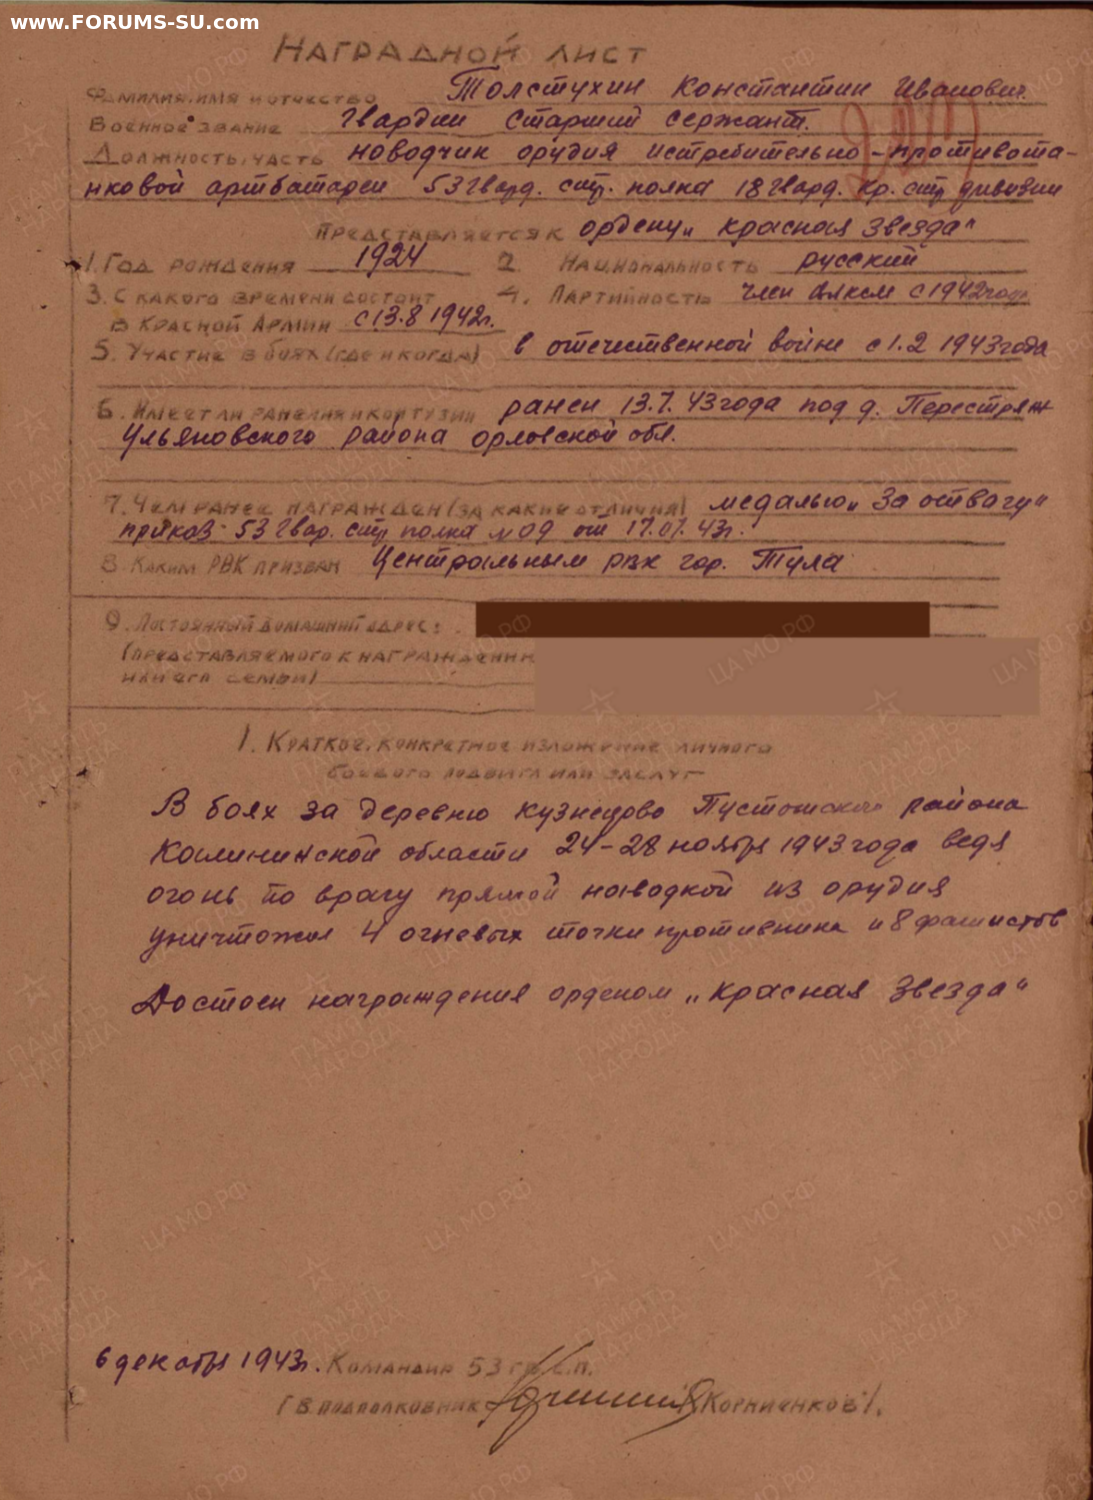 www.FORUMS-SU.com
НАГРАДНОЙ ЛИСТ
ФАМИЛИЯ, ИМЯ И ОТЧЕСТВО Толстухин Константин Иванович
ВОЕННОЕ ЗВАНИЕ Гвардии Старший сержант.
ДОЛЖНОСТЬ, ЧАСТЬ наводчик орудия истребительно-противота-
нковой артбатареи 53 гвард. стр. полка 18 гвард. кр. стр дивизии
ПРЕДСТАВЛЯЕТСЯ К ордену „Красная Звезда"
1. ГОД РОЖДЕНИЯ 1924 2 НАЦИОНАЛЬНОСТЬ русский
3. С КАКОГО ВРЕМЕНИ СОСТОИТ 4. ПАРТИЙНОСТЬ член влксм с 1942 года
В КРАСНОЙ АРМИИ с 13.8 1942г.
5. УЧАСТИЕ В БОЯХ (ГДЕ И КОГДА) в отечественной войне с 1.2 1943 года
6. ИМЕЕТ ЛИ РАНЕНИЯ И КОНТУЗИИ ранен 13.7.43 года под д. Перестряж
Ульяновского района орловской обл.
7. ЧЕМ РАНЕЕ НАГРАЖДЕН (ЗА КАКИЕ ОТЛИЧИЯ) медалью „За отвагу"
приказ 53 гвар. стр полка №09 от 17.07.43г.
8. КАКИМ РВК ПРИЗВАН Центральным рвк гор. Тула
9. ПОСТОЯННЫЙ ДОМАШНИЙ АДРЕС:
(ПРЕДСТАВЛЯЕМОГО К НАГРАЖДЕНИЮ
ИЛИ ЕГО СЕМЬИ)
1. КРАТКОЕ, КОНКРЕТНОЕ ИЗЛОЖЕНИЕ ЛИЧНОГО
БОЕВОГО ПОДВИГА ИЛИ ЗАСЛУГ
В боях за деревню кузнецово Пустошского района
Калининской области 24-28 ноября 1943 года ведя
огонь по врагу прямой наводкой из орудия
уничтожил 4 огневых точки противника и 8 фашистов
Достоен награждения орденом „Красная Звезда"
6 декабря 1943г. КОМАНДИР 53 ГВ. С.П.
/ГВ. ПОДПОЛКОВНИК /КОРНИЕНКОВ/.
ПАМЯТЬ НАРОДА
ЦА МО РФ